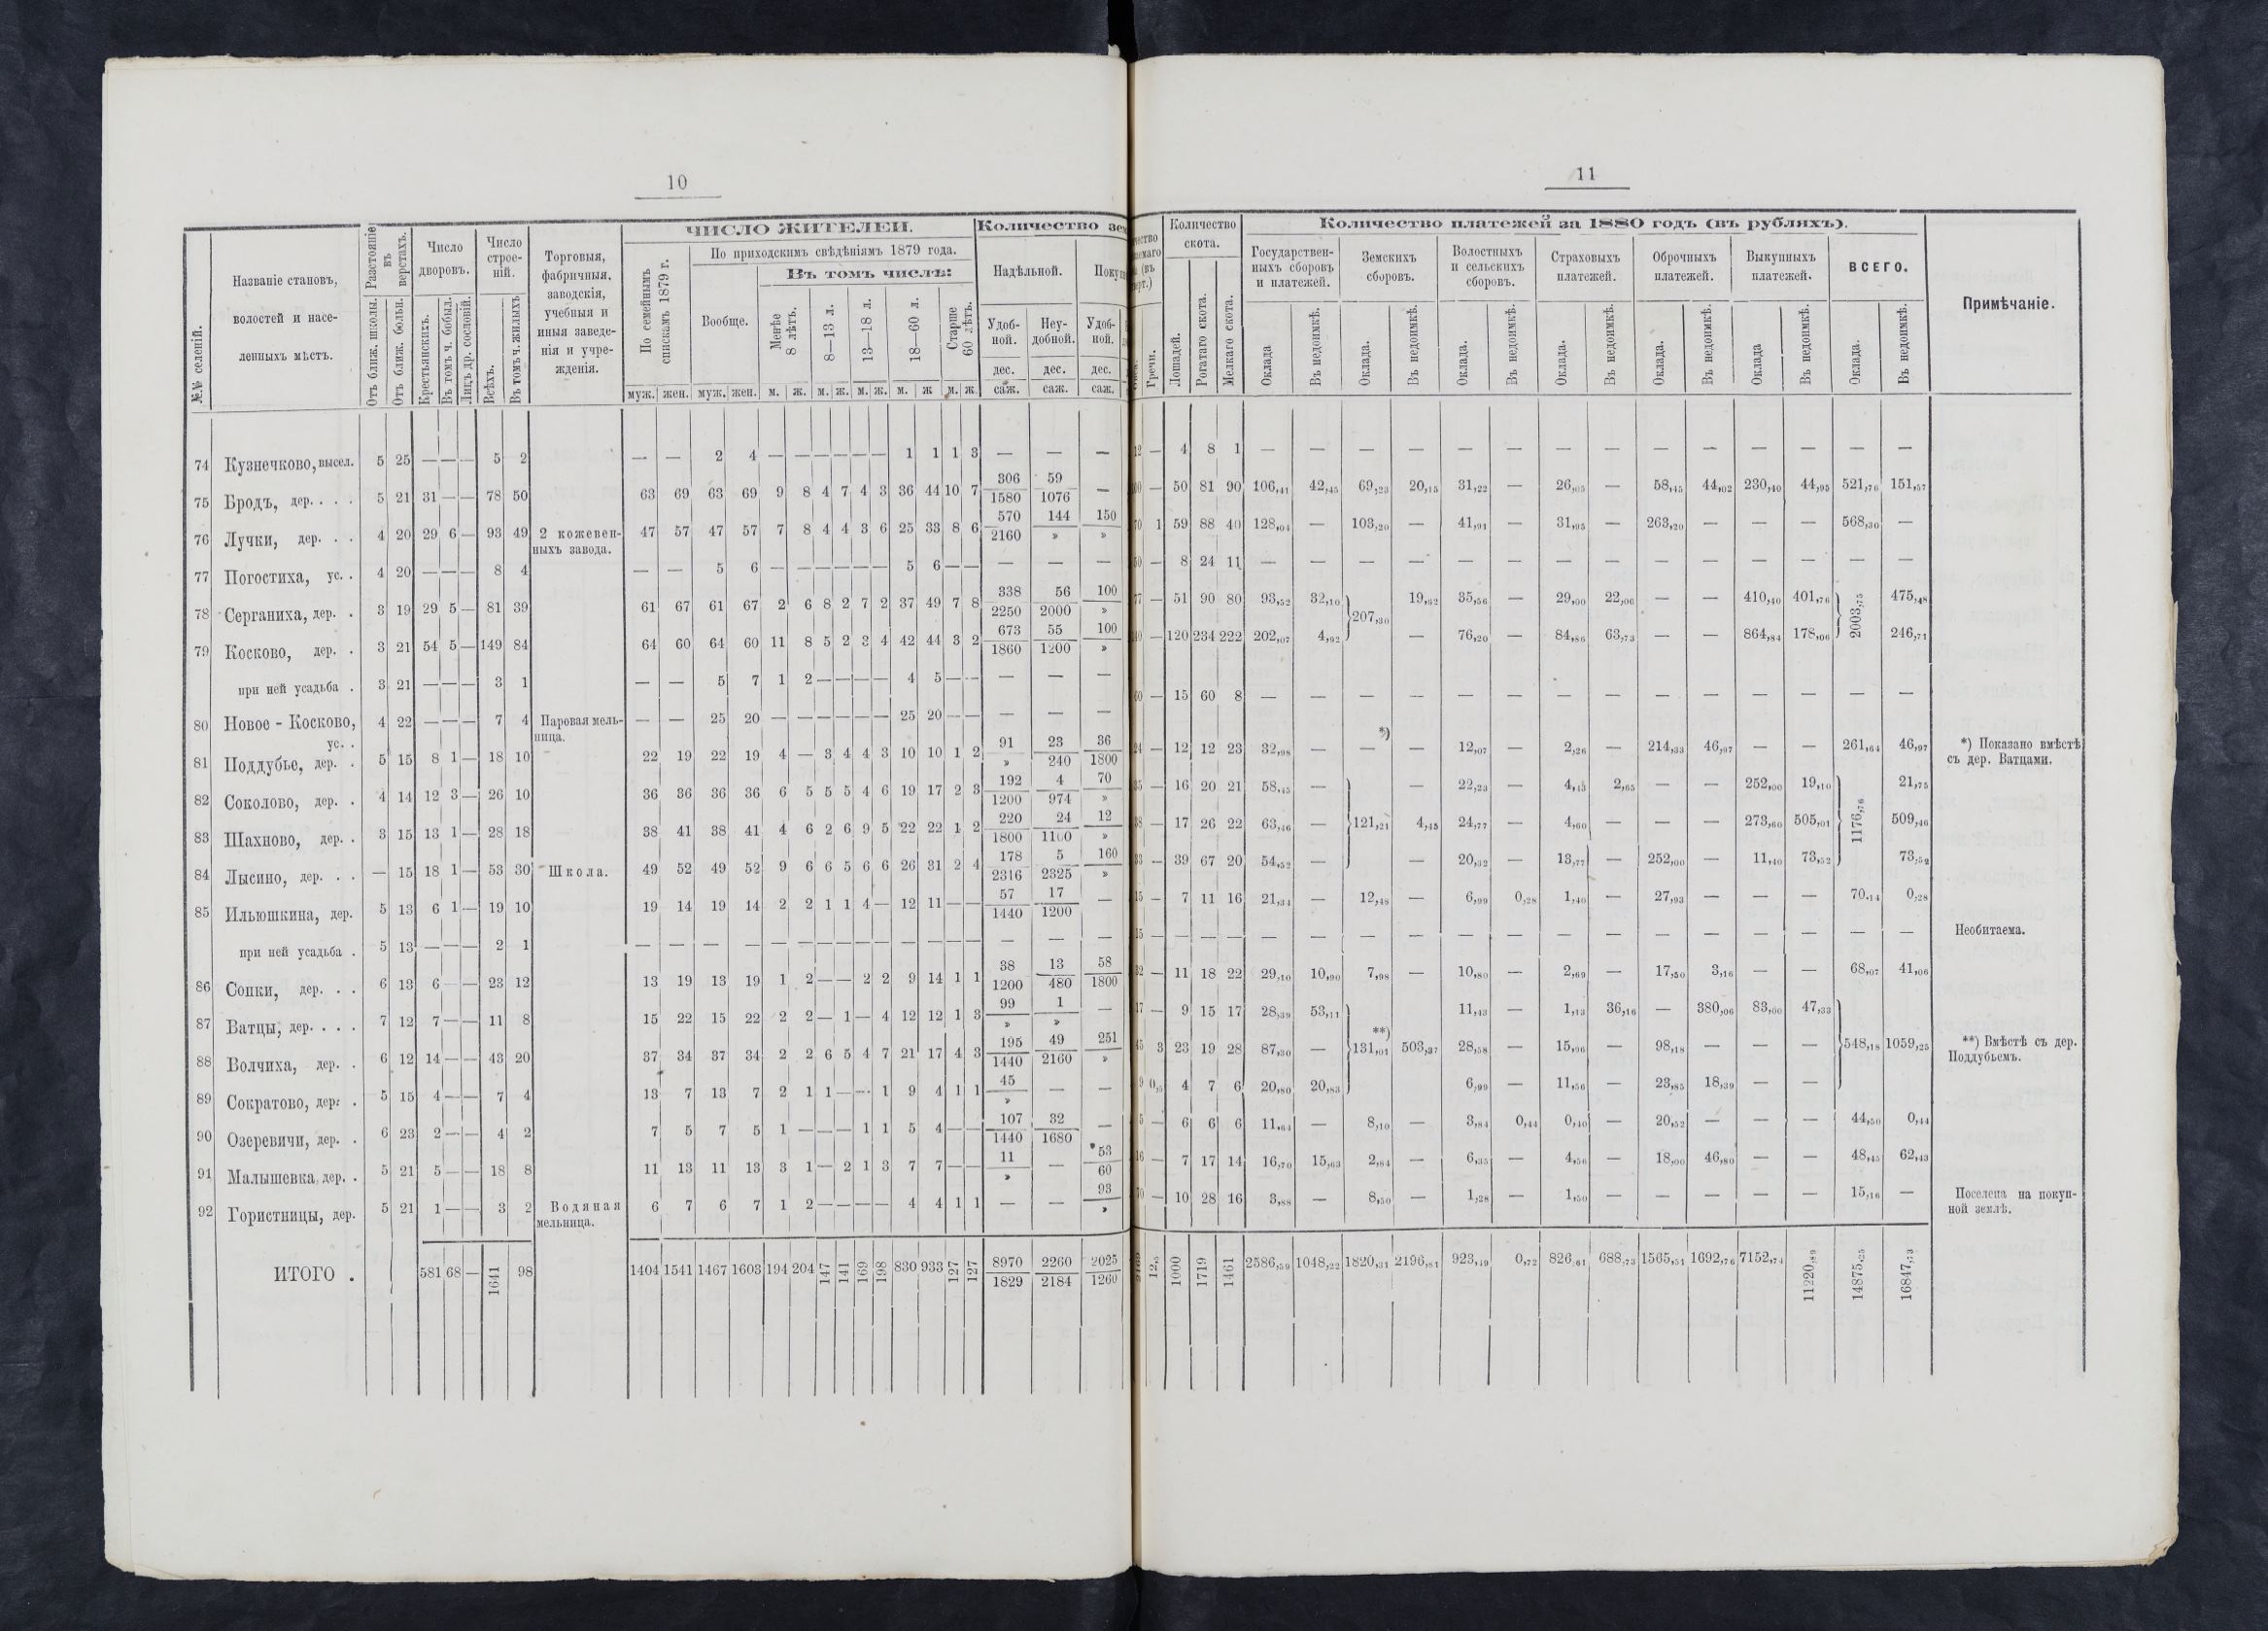 10
№№ селеній.
Названіе становъ, волостей и населенныхъ мѣстъ.
Разстояніе въ верстахъ.
Отъ ближ. школы.
Отъ ближ. больн.
Число дворовъ.
Крестьянскихъ.
Въ томъ ч. бобыл.
Лицъ др. сословій.
Число строеній.
Всѣхъ.
Въ томъ ч. жилыхъ
Торговыя, фабричныя, заводскія, учебныя и иныя заведенія и учрежденія.
ЧИСЛО ЖИТЕЛЕЙ.
По семейнымъ спискамъ 1879 г.
По приходскимъ свѣдѣніямъ 1879 года.
Вообще.
Въ томъ числѣ:
Менѣе 8 лѣтъ.
8—13 л.
13—18 л.
18—60 л.
Старше 60 лѣтъ.
муж. жен. муж. жен. м. ж. м. ж. м. ж. м. ж м. ж.
Количество
Надѣльной.
Удобной. Неудобной. Удобной.
дес. дес. дес.
саж. саж. саж.
74 Кузнечково, высел. 5 25 — — — 5 2 — — 2 4 — — — — — — 1 1 1 3 — — —
75 Бродъ, дер. . . . 5 21 31 — — 78 50 63 69 63 69 9 8 4 7 4 3 36 44 10 7 306/1580 59/1076 —
76 Лучки, дер. . . 4 20 29 6 — 93 49 2 кожевенныхъ завода. 47 57 47 57 7 8 4 4 3 6 25 33 8 6 570/2160 144/» 150/»
77 Погостиха, ус. . 4 20 — — — 8 4 — — 5 6 — — — — — — 5 6 — — — — —
78 Серганиха, дер. . 3 19 29 5 — 81 39 61 67 61 67 2 6 8 2 7 2 37 49 7 8 338/2250 56/2000 100/»
79 Косково, дер. . 3 21 54 5 — 149 84 64 60 64 60 11 8 5 2 3 4 42 44 3 2 673/1860 55/1200 100/»
при ней усадьба . 3 21 — — — 3 1 — — 5 7 1 2 — — — — 4 5 — — — — —
80 Новое - Косково, ус. . 4 22 — — — 7 4 Паровая мельница. — — 25 20 — — — — — — 25 20 — — — — —
81 Поддубье, дер. . 5 15 8 1 — 18 10 22 19 22 19 4 — 3 4 4 3 10 10 1 2 91/» 23/240 36/1800
82 Соколово, дер. . 4 14 12 3 — 26 10 36 36 36 36 6 5 5 5 4 6 19 17 2 3 192/1200 4/974 70/»
83 Шахново, дер. . 3 15 13 1 — 28 18 38 41 38 41 4 6 2 6 9 5 22 22 1 2 220/1800 24/1100 12/»
84 Лысино, дер. . . — 15 18 1 — 53 30 Школа. 49 52 49 52 9 6 6 5 6 6 26 31 2 4 178/2316 5/2325 160/»
85 Ильюшкина, дер. 5 13 6 1 — 19 10 19 14 19 14 2 2 1 1 4 — 12 11 — — 57/1440 17/1200 —
при ней усадьба . 5 13 — — — 2 1 — — — — — — — — — — — — — — — — —
86 Сопки, дер. . . 6 13 6 — — 23 12 13 19 13 19 1 2 — — 2 2 9 14 1 1 38/1200 13/480 58/1800
87 Ватцы, дер. . . . 7 12 7 — — 11 8 15 22 15 22 2 2 — 1 — 4 12 12 1 3 99/» 1/» —
88 Волчиха, дер. . 6 12 14 — — 43 20 37 34 37 34 2 2 6 5 4 7 21 17 4 3 195/1440 49/2160 251/»
89 Сократово, дер. . 5 15 4 — — 7 4 13 7 13 7 2 1 1 — — 1 9 4 1 1 45/» — —
90 Озеревичи, дер. . 6 23 2 — — 4 2 7 5 7 5 1 — — — 1 1 5 4 — — 107/1440 32/1680 —
91 Малышевка, дер. . 5 21 5 — — 18 8 11 13 11 13 3 1 — 2 1 3 7 7 — — 11/» — 53/60
92 Гористницы, дер. 5 21 1 — — 3 2 Водяная мельница. 6 7 6 7 1 2 — — — — 4 4 1 1 — — 93/»
ИТОГО . 581 68 — 1641 98 1404 1541 1467 1603 194 204 147 141 169 198 830 933 127 127 8970/1829 2260/2184 2025/1260
11
Гречи.
Количество скота.
Лошадей.
Рогатаго скота.
Мелкаго скота.
Количество платежей за 1880 годъ (въ рубляхъ).
Государственныхъ сборовъ и платежей.
Земскихъ сборовъ.
Волостныхъ и сельскихъ сборовъ.
Страховыхъ платежей.
Оброчныхъ платежей.
Выкупныхъ платежей.
ВСЕГО.
Оклада Въ недоимкѣ. Оклада. Въ недоимкѣ. Оклада. Въ недоимкѣ. Оклада. Въ недоимкѣ. Оклада. Въ недоимкѣ. Оклада Въ недоимкѣ. Оклада. Въ недоимкѣ.
Примѣчаніе.
— 4 8 1 — — — — — — — — — — — — — —
— 50 81 90 106,41 42,45 69,23 20,15 31,22 — 26,05 — 58,45 44,02 230,40 44,95 521,76 151,57
1 59 88 40 128,04 — 103,20 — 41,91 — 31,95 — 263,20 — — — 568,30 —
— 8 24 11 — — — — — — — — — — — — — —
— 51 90 80 93,52 32,10 207,30 19,62 35,56 — 29,00 22,06 — — 410,40 401,76 2003,75 475,48
— 120 234 222 202,07 4,92 — 76,20 — 84,86 63,73 — — 864,84 178,06 246,71
— 15 60 8 — — — — — — — — — — — — — —
— 12 12 23 32,98 — *) — — 12,07 — 2,26 — 214,33 46,97 — — 261,64 46,97 *) Показано вмѣстѣ съ дер. Ватцами.
— 16 20 21 58,45 — 22,23 — 4,45 2,65 — — 252,00 19,10 21,75
— 17 26 22 63,46 — 121,21 4,45 24,77 — 4,60 — — — 273,60 505,01 1176,76 509,46
— 39 67 20 54,52 — — 20,32 — 13,77 — 252,00 — 11,40 73,52 73,52
— 7 11 16 21,34 — 12,48 — 6,99 0,28 1,40 — 27,93 — — — 70,14 0,28
— — — — — — — — — — — — — — — — — Необитаема.
— 11 18 22 29,10 10,90 7,98 — 10,80 — 2,69 — 17,50 3,16 — — 68,07 41,06
— 9 15 17 28,39 53,11 11,43 — 1,13 36,16 — 380,06 83,60 47,33
3 23 19 28 87,30 — **) 131,01 503,37 28,58 — 15,96 — 98,18 — — — 548,18 1059,25 **) Вмѣстѣ съ дер. Поддубьемъ.
4 7 6 20,80 20,83 6,99 — 11,56 — 23,85 18,39 — —
— 6 6 6 11,64 — 8,10 — 3,84 0,44 0,40 — 20,52 — — — 44,50 0,44
— 7 17 14 16,70 15,63 2,84 — 6,35 — 4,56 — 18,00 46,80 — — 48,45 62,43
— 10 28 16 3,88 — 8,50 — 1,28 — 1,50 — — — — — 15,16 — Поселена на покупной землѣ.
12,5 1000 1719 1461 2586,59 1048,22 1820,31 2196,81 923,49 0,72 826,61 688,73 1565,51 1692,76 7152,74 11220,89 14875,25 16847,73